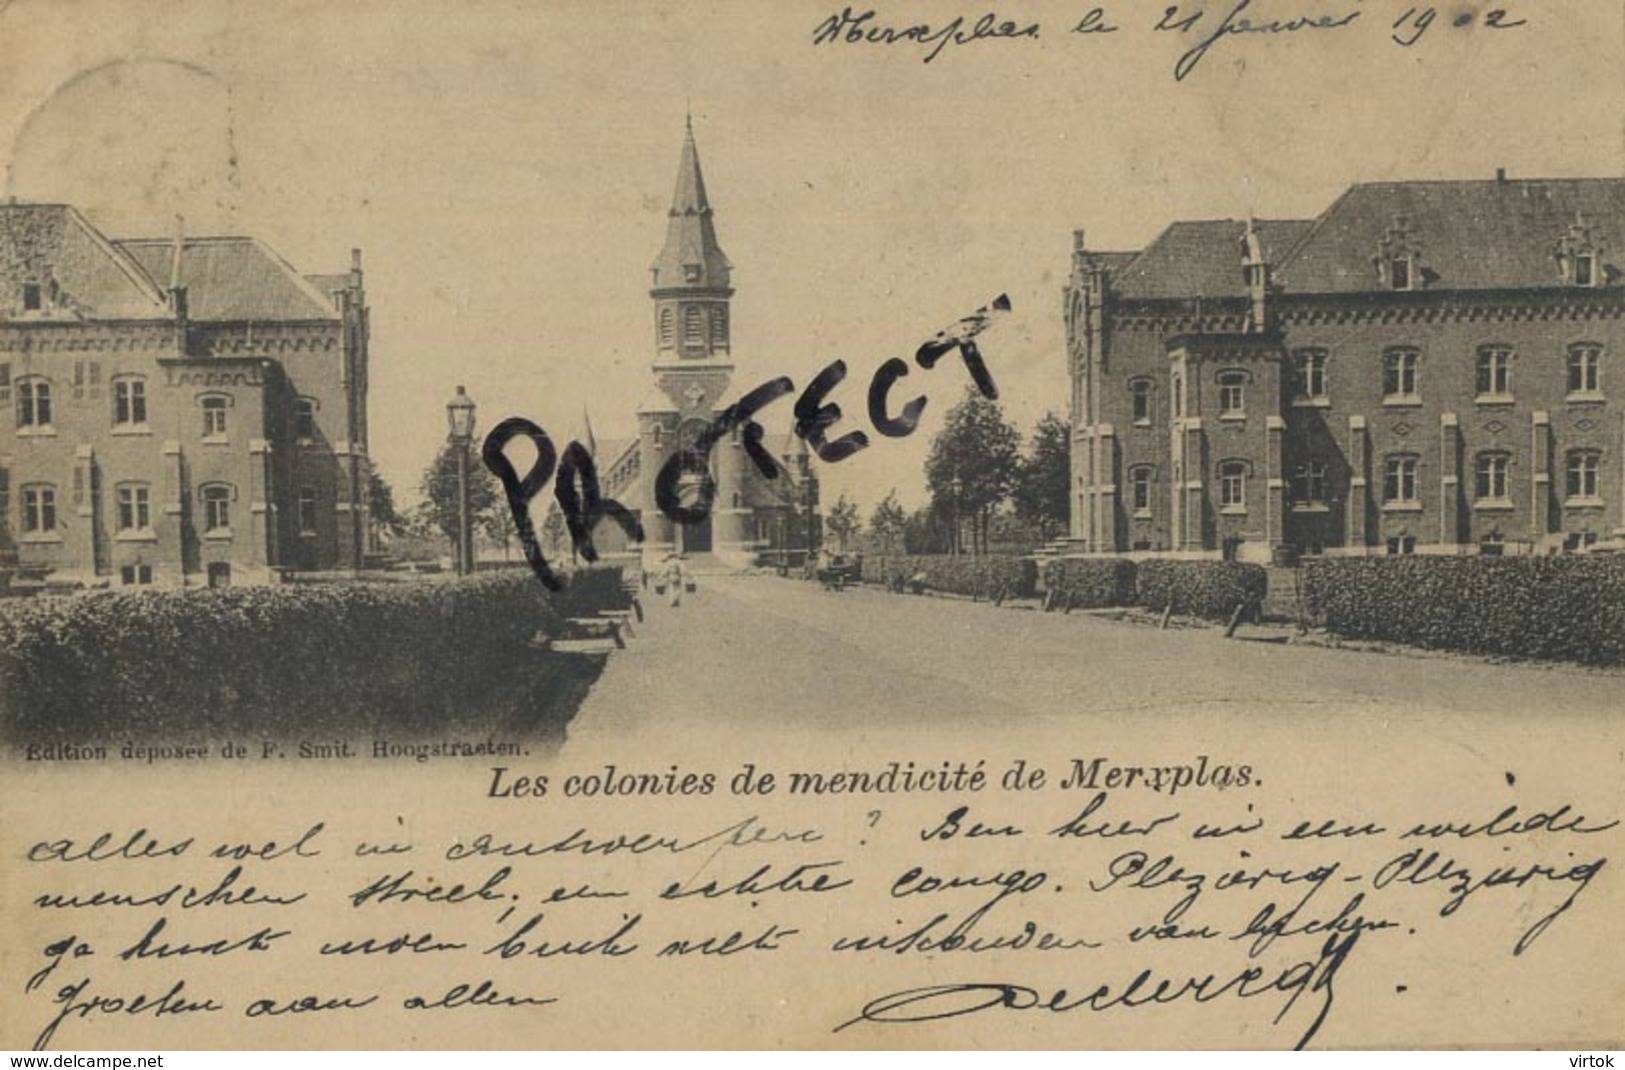 Merxplas le 21 Janvier 1902
PROTECT
Edition déposée de F. Smit. Hoogstraeten.
Les colonies de mendicité de Merxplas.
alles wel in Antwerpen? Ben hier in een wilde
menschen streek; een echte Congo. Plezierig - Plezierig
ge kunt uwen buik niet inhouden van lachen.
Groeten aan allen Declercq
www.delcampe.net
virtok